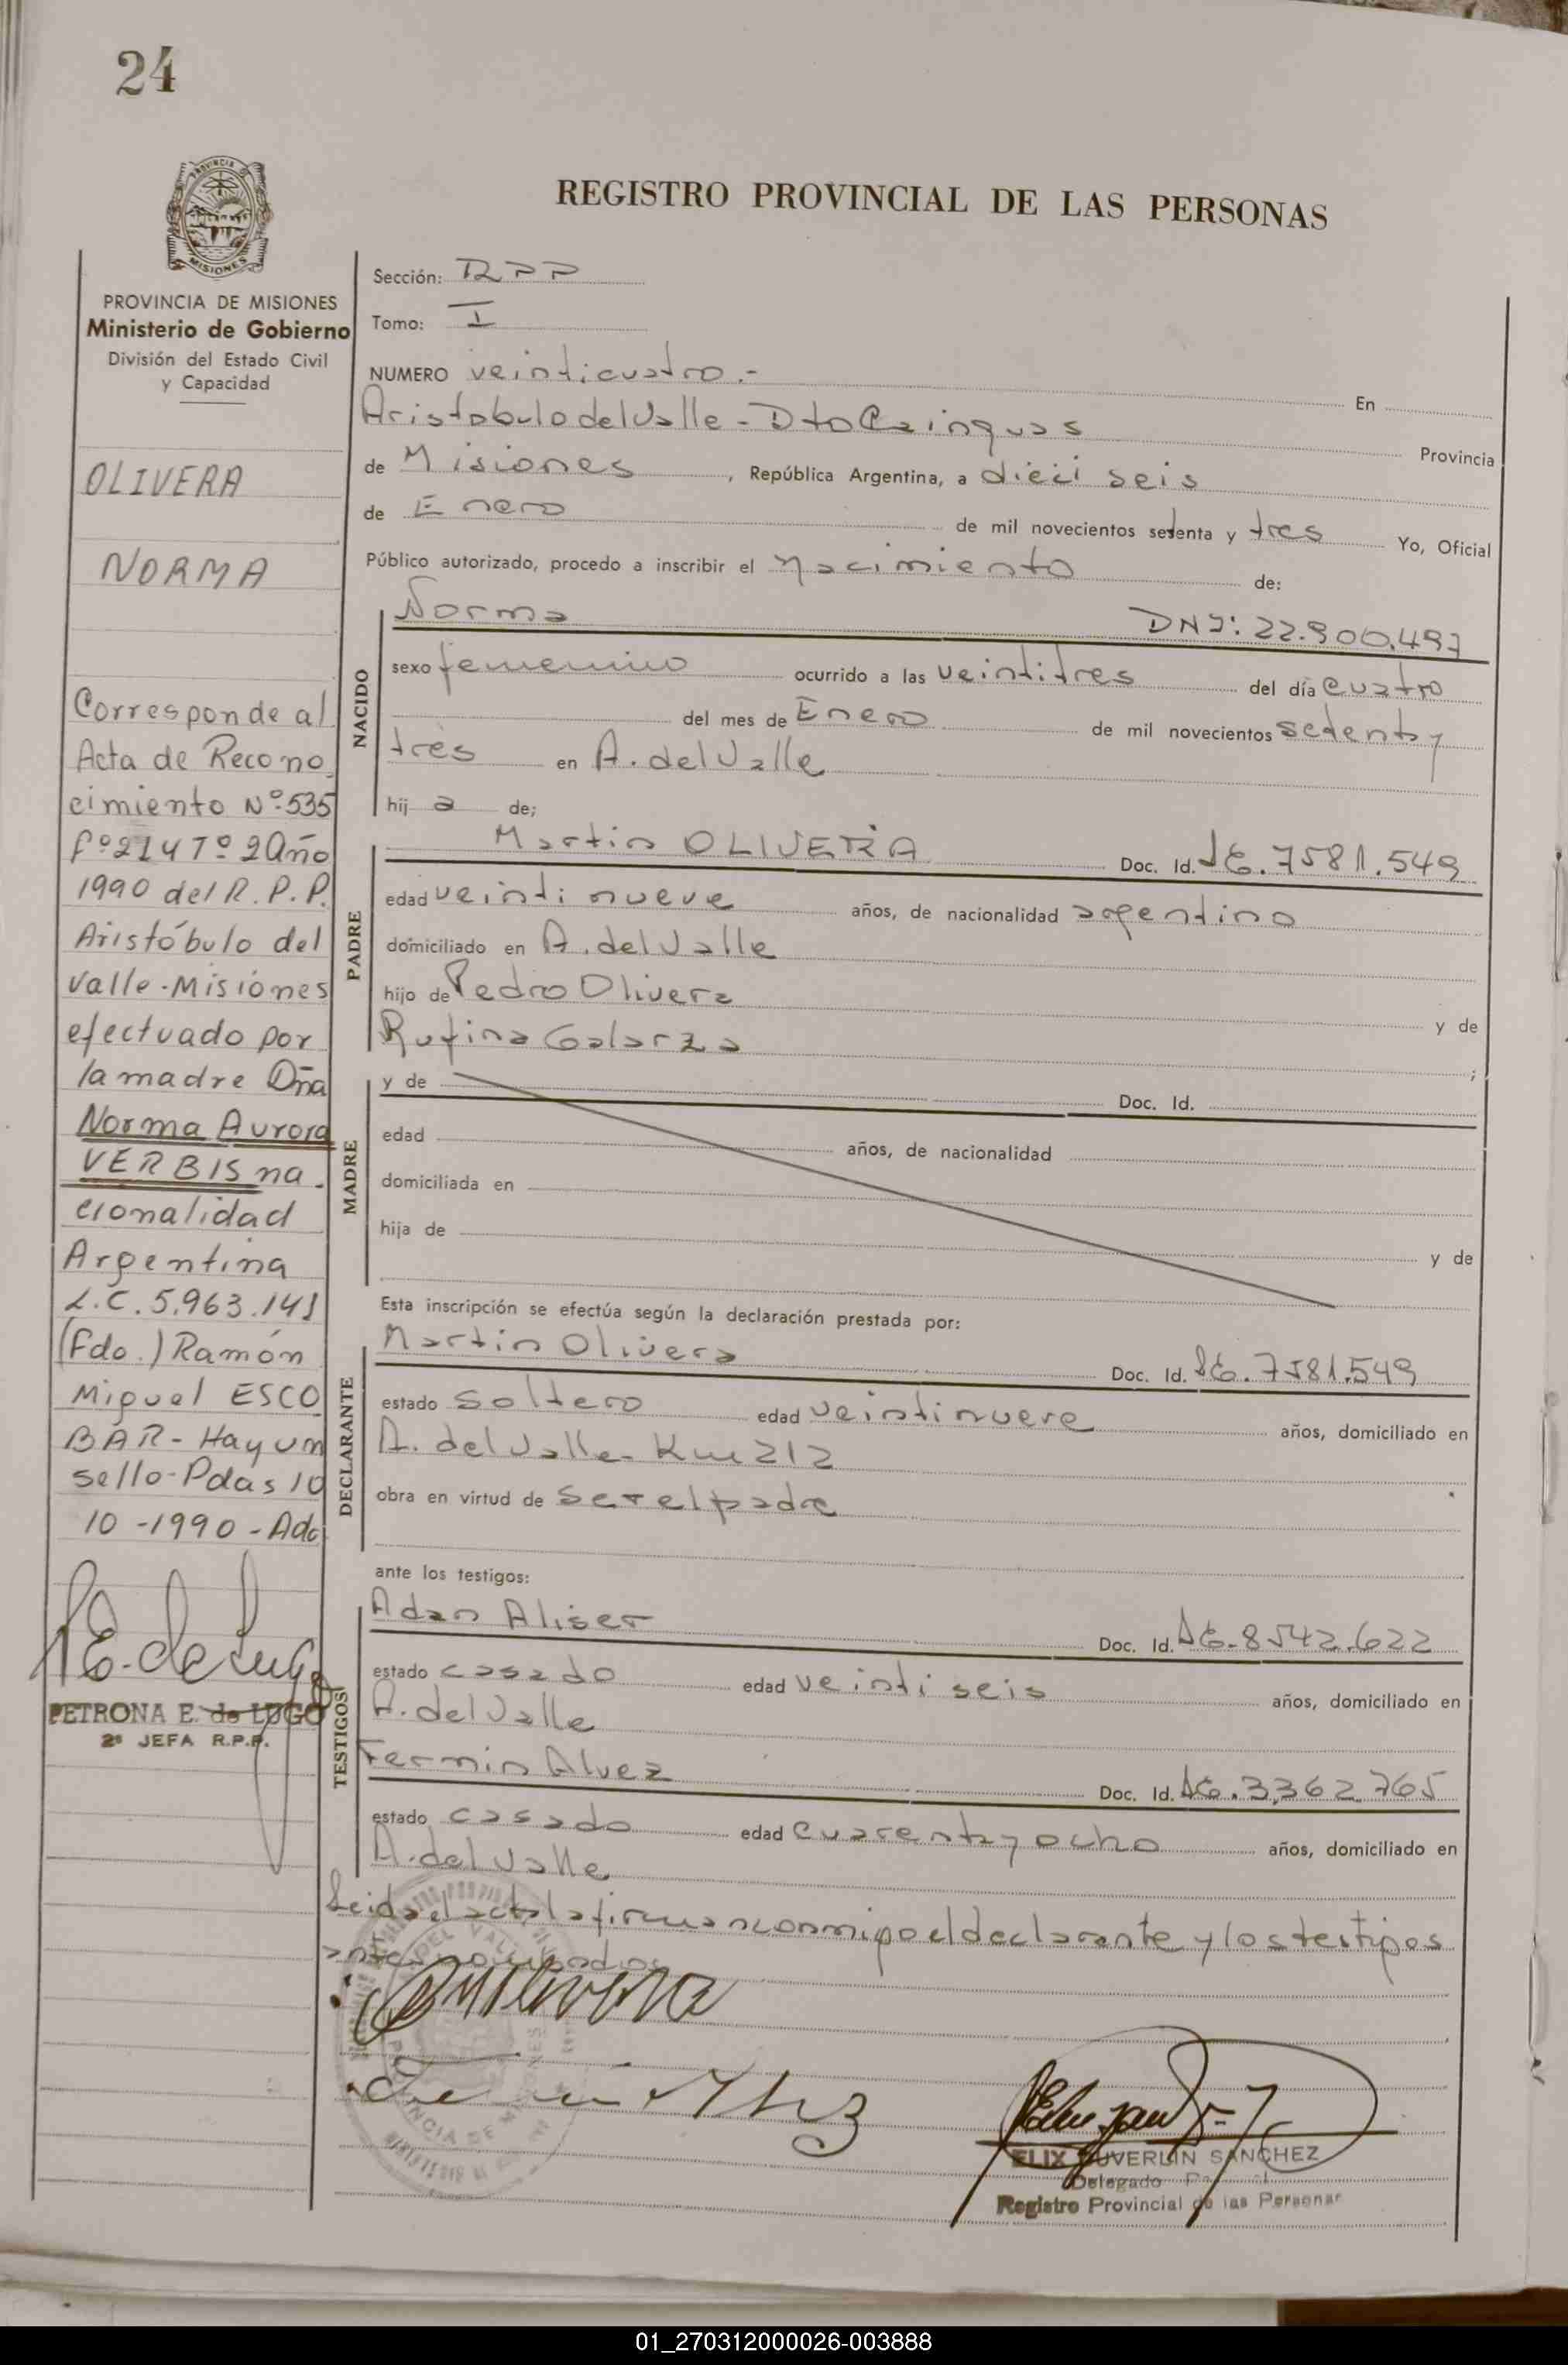 24
PROVINCIA
MISIONES
REGISTRO PROVINCIAL DE LAS PERSONAS
PROVINCIA DE MISIONES
Ministerio de Gobierno
División del Estado Civil
y Capacidad
OLIVERA
NORMA
Corresponde al
Acta de Recono
cimiento Nº 535
fº 214 Tº 2 Año
1990 del R.P.P.
Aristóbulo del
Valle-Misiones
efectuado por
la madre Dña
Norma Aurora
VERBIS na-
cionalidad
Argentina
L.C. 5.963.141
(Fdo.) Ramón
Miguel ESCO
BAR - Hay un
sello-Pdas 10
10-1990-Adc
PETRONA E. de LUGO
2ª JEFA R.P.P.
Sección: RPP
Tomo: I
NUMERO veinticuatro.- En
Aristobulo del Valle - Dto Cainguas Provincia
de Misiones, República Argentina, a dieci seis
de Enero de mil novecientos setenta y tres Yo, Oficial
Público autorizado, procedo a inscribir el Nacimiento de:
NACIDO
Norma DNI: 22.900.497
sexo femenino ocurrido a las veintitres del día cuatro
del mes de Enero de mil novecientos setenty
tres en A. del Valle
hij a de;
PADRE
Martin OLIVERA Doc. Id. LE. 7581.549
edad veinti nueve años, de nacionalidad argentino
domiciliado en A. del Valle
hijo de Pedro Olivera y de
Rufina Galarza ;
MADRE
y de Doc. Id.
edad años, de nacionalidad
domiciliada en
hija de y de
Esta inscripción se efectúa según la declaración prestada por:
DECLARANTE
Martin Olivera Doc. Id. LE. 7581.549
estado soltero edad veintinueve años, domiciliado en
A. del Valle - Km 212
obra en virtud de ser el padre
ante los testigos:
TESTIGOS
Adan Aliser Doc. Id. LE. 8542.622
estado casado edad veinti seis años, domiciliado en
A. del Valle
Fermin Alvez Doc. Id. LE. 3.362.765
estado casado edad cuarentay ocho años, domiciliado en
A. del Valle
Leida el acta la firman conmigo el declarante y los testigos
ELIX DUVERLIN SANCHEZ
Delegado
Registro Provincial de las Personas
01_270312000026-003888